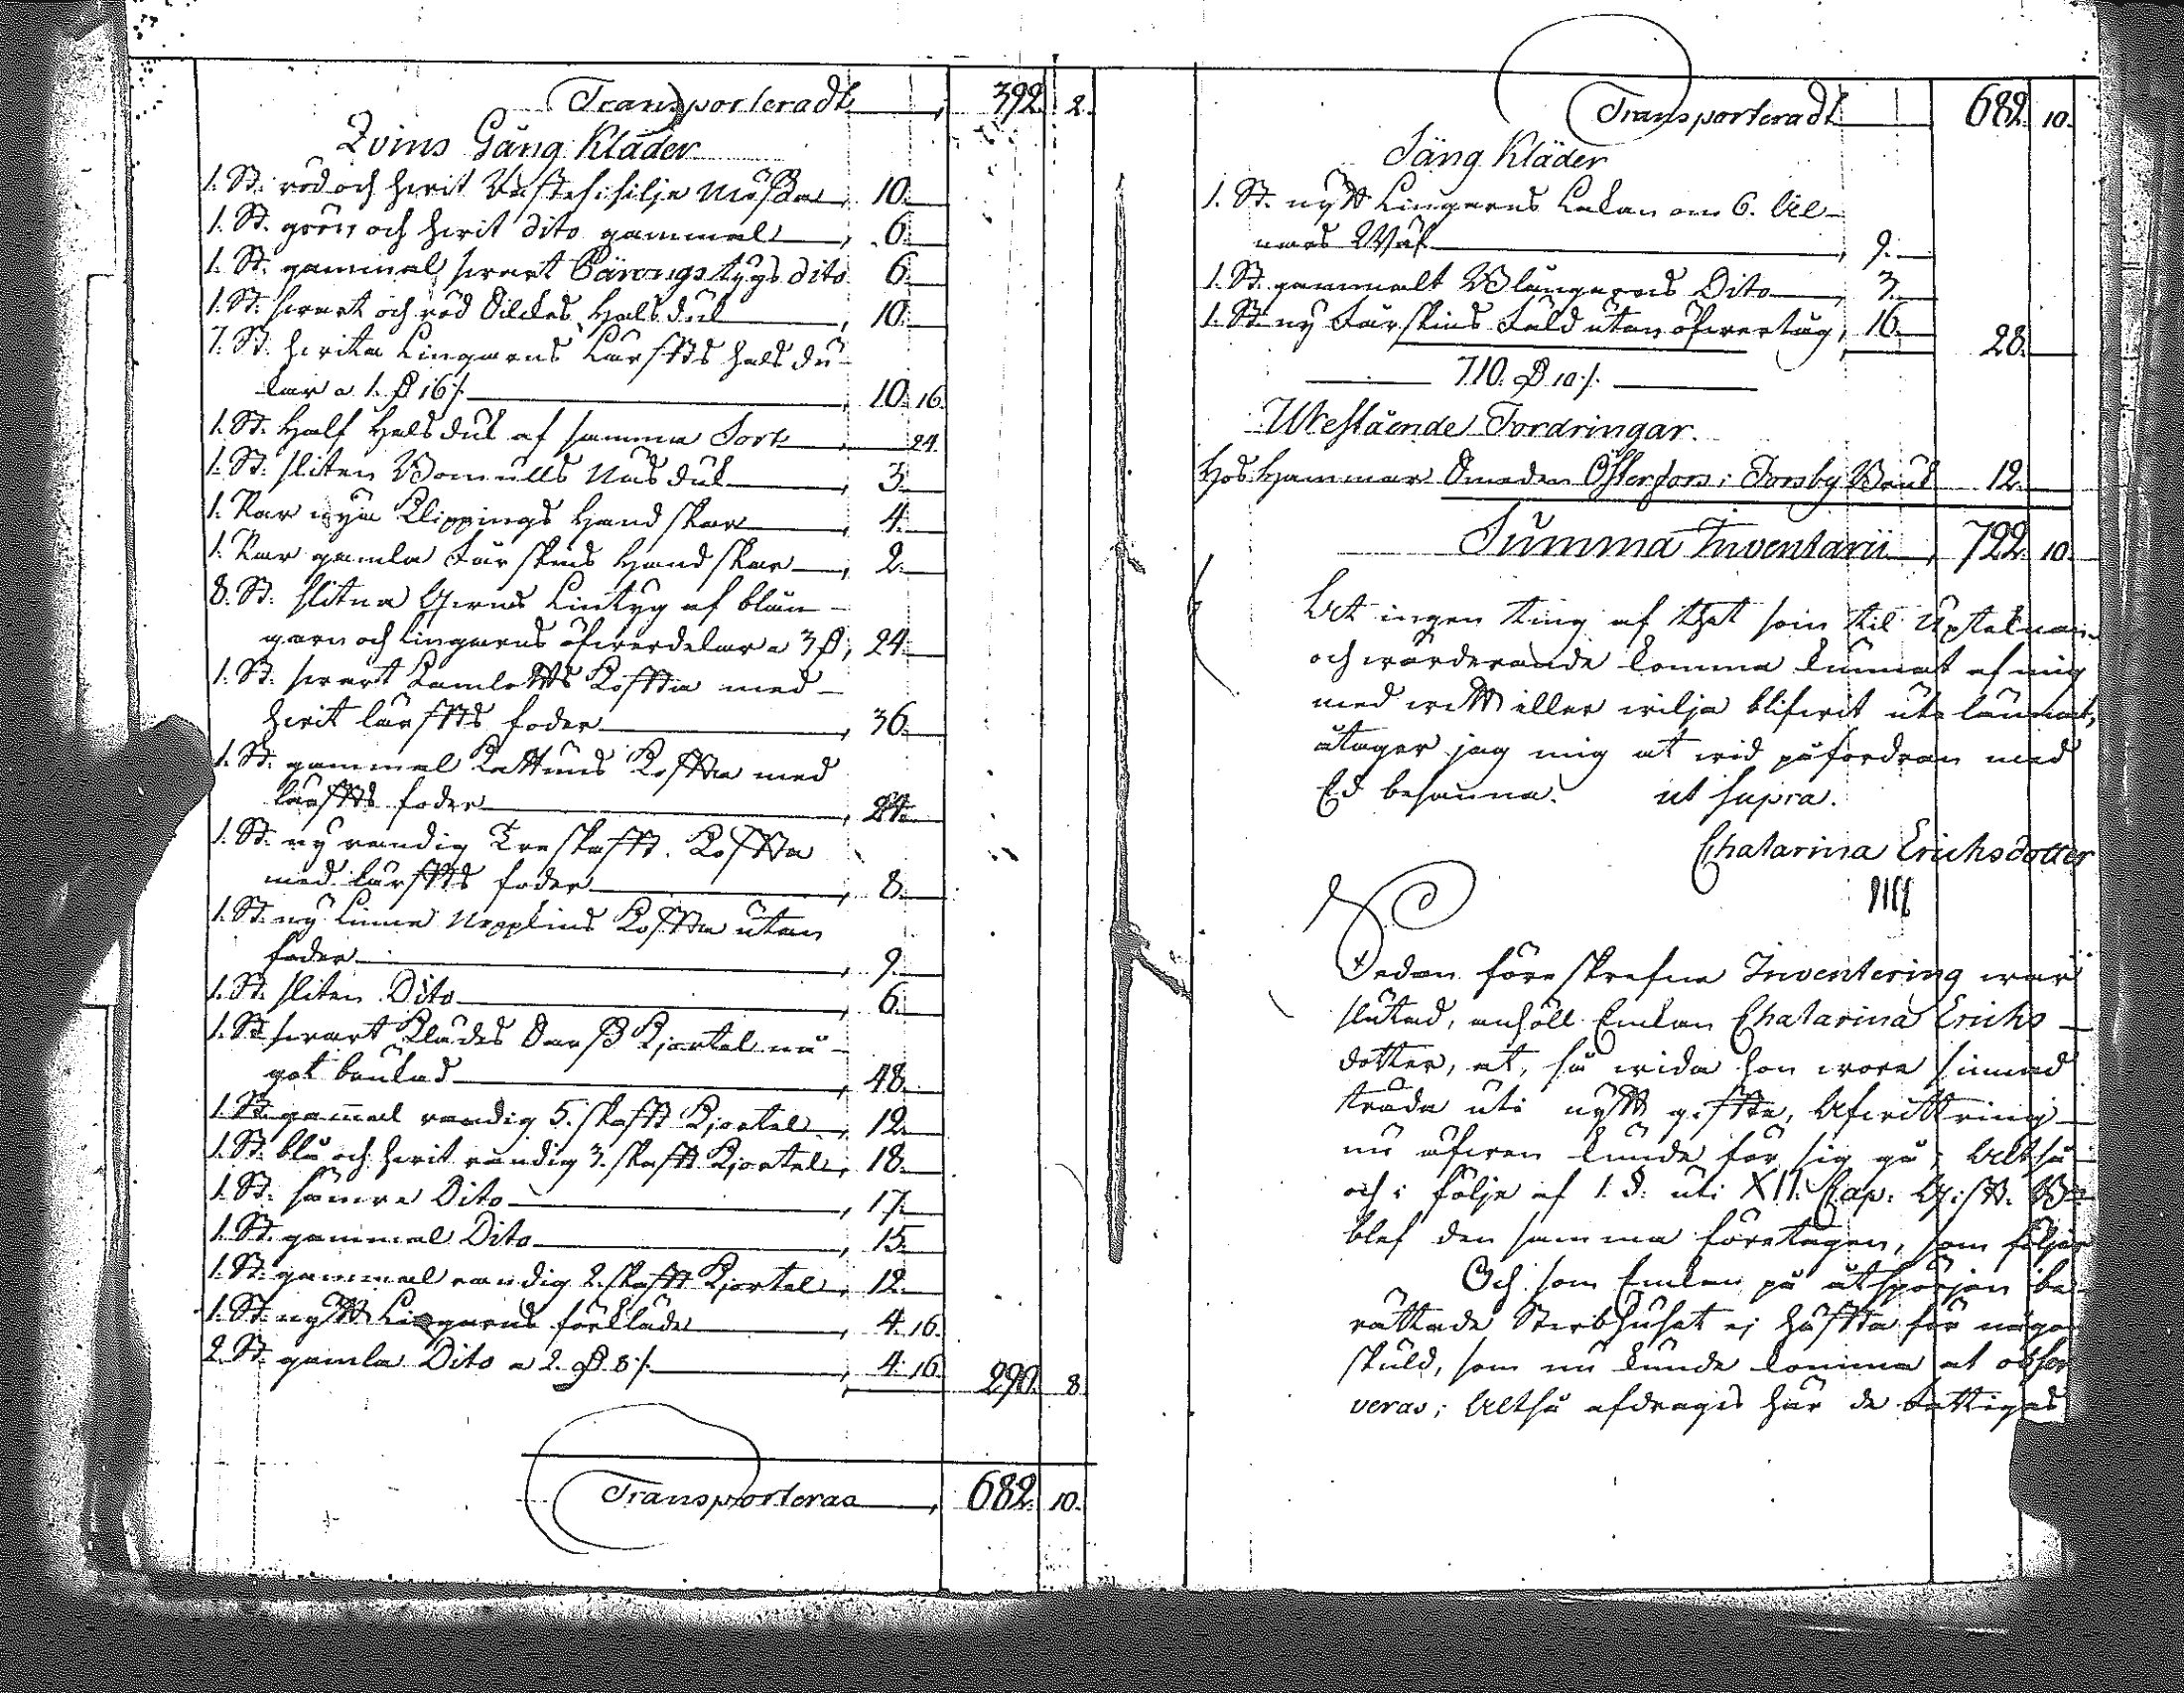 Transporteradt 392. 2.
Qvins Gång Kläder
1. St. röd och hwit mössa 10.
1. St. grön och hwit dito gammal 6.
1. St. gammal swart tygs dito 6.
1. St. swart och röd Silkes Halsduk 10.
7. St. hwita Lingarns Lärffts halsdu-
kar a 1. D 16/. 10. 16.
1. St. Half Halsduk af samma Sort 24.
1. St. sliten Bomulls Näsduk 3.
1. Par nya Klippings Handskar 4.
1. Par gamla Fårskins Handskar 2.
8. St. slitna Lintyg af blån-
garn och lingarns öfwerdelar a 3 D, 24.
1. St. swart Kamlotts Kofta med
hwit lärffts foder 36.
1. St. gammal Kattuns Kofta med
lärffts foder 24.
1. St. ny randig Treskafft. Kofta
med lärffts foder 8.
1. St. ny Linne Kofta utan
foder 9.
1. St. sliten Dito 6.
1. St. swart Klädes Kjortel nå-
got brukad 48.
1. St. gam̄al randig 5. skafft Kjortel 12.
1. St. blå och hwit randig 3. skafft Kjortel, 18.
1. St. sämre Dito 17.
1. St. gammal Dito 15.
1. St. gammal randig 2. skafft Kjortel 12.
1. St. nytt Lingarns förkläde 4. 16.
2. St. gamla Dito a 2. D 8/. 4. 16. 290. 8.
Transporteras 682. 10.
Transporteradt 682. 10.
Säng Kläder
1. St. nytt Lingarns Lakan om 6. Al-
nars Wäf 9.
1. St. gammalt Blångarns Dito 3.
1. St. ny Fårskins Fäld utan öfwertåg, 16. 28.
710. D 10/.
Utestående Fordringar.
Hos Hammar Smeden Österfors i Forsby Bruk 12.
Summa Inventarii 722. 10.
At ingen ting af thet som til Upteknan-
och wärderande komma kunnat af mig
med wett eller wilja blifwit utelämnat,
åtager jag mig at wid påfordran med
Ed besanna. ut supra.
Chatarina Erichsdotter
Sedan föreskrefne Inventering war
slutad, anhöll Enkan Chatarina Erichs-
dotter, at, så wida hon wore sinnad
träda uti nytt giffte, Afwittring
nu äfwen kunde för sig gå; Altså
och i följe af 1. §. uti XII. Cap. Gifft. B.
blef den samma företagen, som följer
Och som Enkan på åtspörjan be-
rättade Sterbhuset ej häffta för någon
skuld, som nu kunde komma at obser
veras; Altså afdrages här de Fattigas